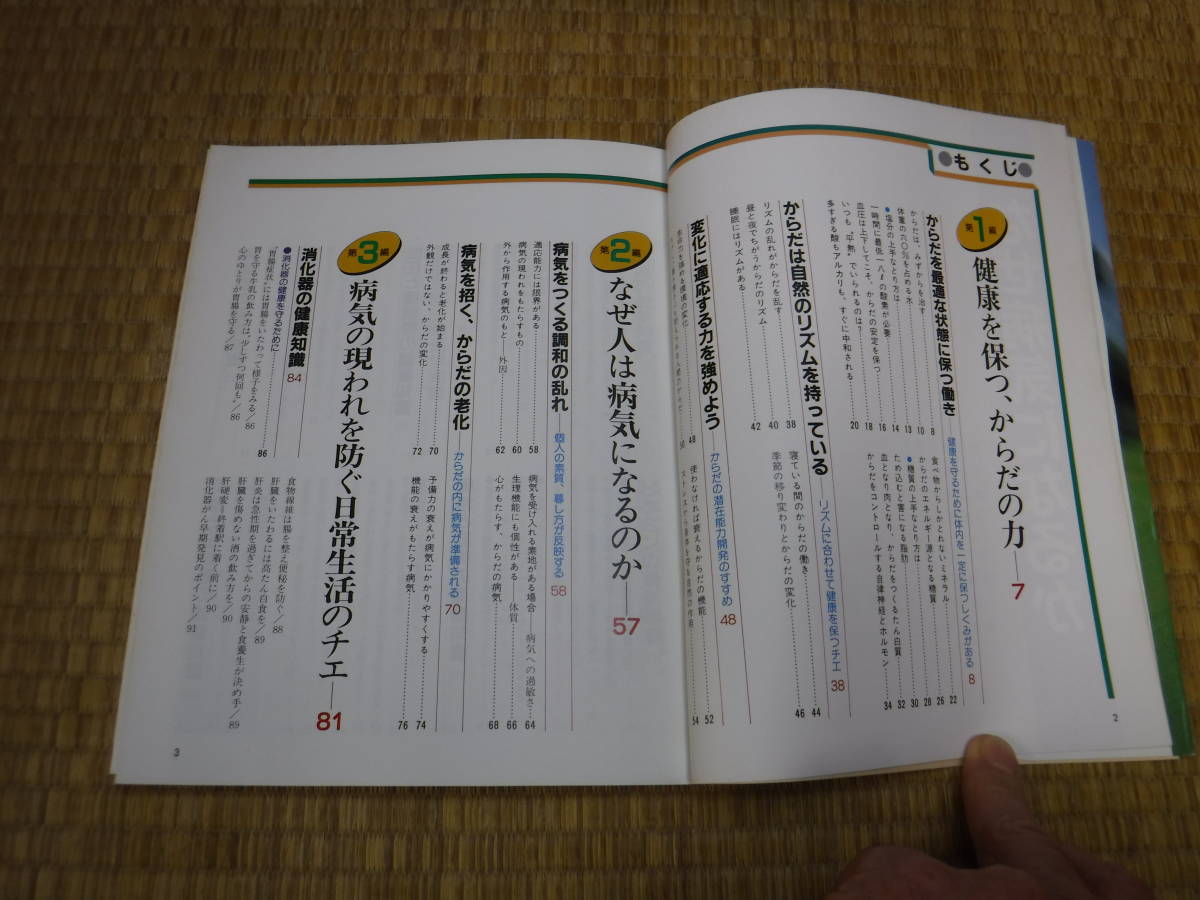 もくじ
第1編 健康を保つ、からだの力 7
からだを最適な状態に保つ働き 健康を守るために体内を一定に保つしくみがある 8
からだは、みずからを治す 8
体重の六〇%を占める水 10
●塩分の上手なとり方は 13
一時間に最低一八ℓの酸素が必要 14
血圧は上下してこそ、からだの安定を保つ 16
いつも“平熱”でいられるのは? 18
多すぎる酸もアルカリも、すぐに中和される 20
食べ物からしかとれないミネラル 22
からだのエネルギー源となる糖質 26
●糖質の上手なとり方は 28
ため込むと害になる脂肪 30
血となり肉となり、からだをつくるたん白質 32
からだをコントロールする自律神経とホルモン 34
からだは自然のリズムを持っている リズムに合わせて健康を保つチエ 38
リズムの乱れがからだを乱す 38
昼と夜でちがうからだのリズム 40
睡眠にはリズムがある 42
寝ている間のからだの働き 44
季節の移り変わりとからだの変化 46
変化に適応する力を強めよう からだの潜在能力開発のすすめ 48
48
50
使わなければ衰えるからだの機能 52
54
2
第2編 なぜ人は病気になるのか 57
病気をつくる調和の乱れ 個人の素質、暮し方が反映する 58
適応能力には限界がある 58
病気の現われをもたらすもの 60
外から作用する病気のもと―外因 62
病気を受け入れる素地がある場合―病気への過敏さ 64
生理機能にも個性がある―体質 66
心がもたらす、からだの病気 68
病気を招く、からだの老化 からだの内に病気が準備される 70
成長が終わると老化が始まる 70
外観だけではない、からだの変化 72
予備力の衰えが病気にかかりやすくする 74
機能の衰えがもたらす病気 76
第3編 病気の現われを防ぐ日常生活のチエ 81
消化器の健康知識 84
●消化器の健康を守るために 86
“胃腸症状”には胃腸をいたわって様子をみる/86
胃を守る牛乳の飲み方は、少しずつ何回も/86
心のゆとりが胃腸を守る/87
食物繊維は腸を整え便秘を防ぐ/88
肝臓をいたわるには高たん白食を/89
肝炎は急性期を過ぎてからの安静と食養生が決め手/89
肝臓を傷めない酒の飲み方を/90
肝硬変=終着駅に着く前に/90
消化器がん早期発見のポイント/91
3